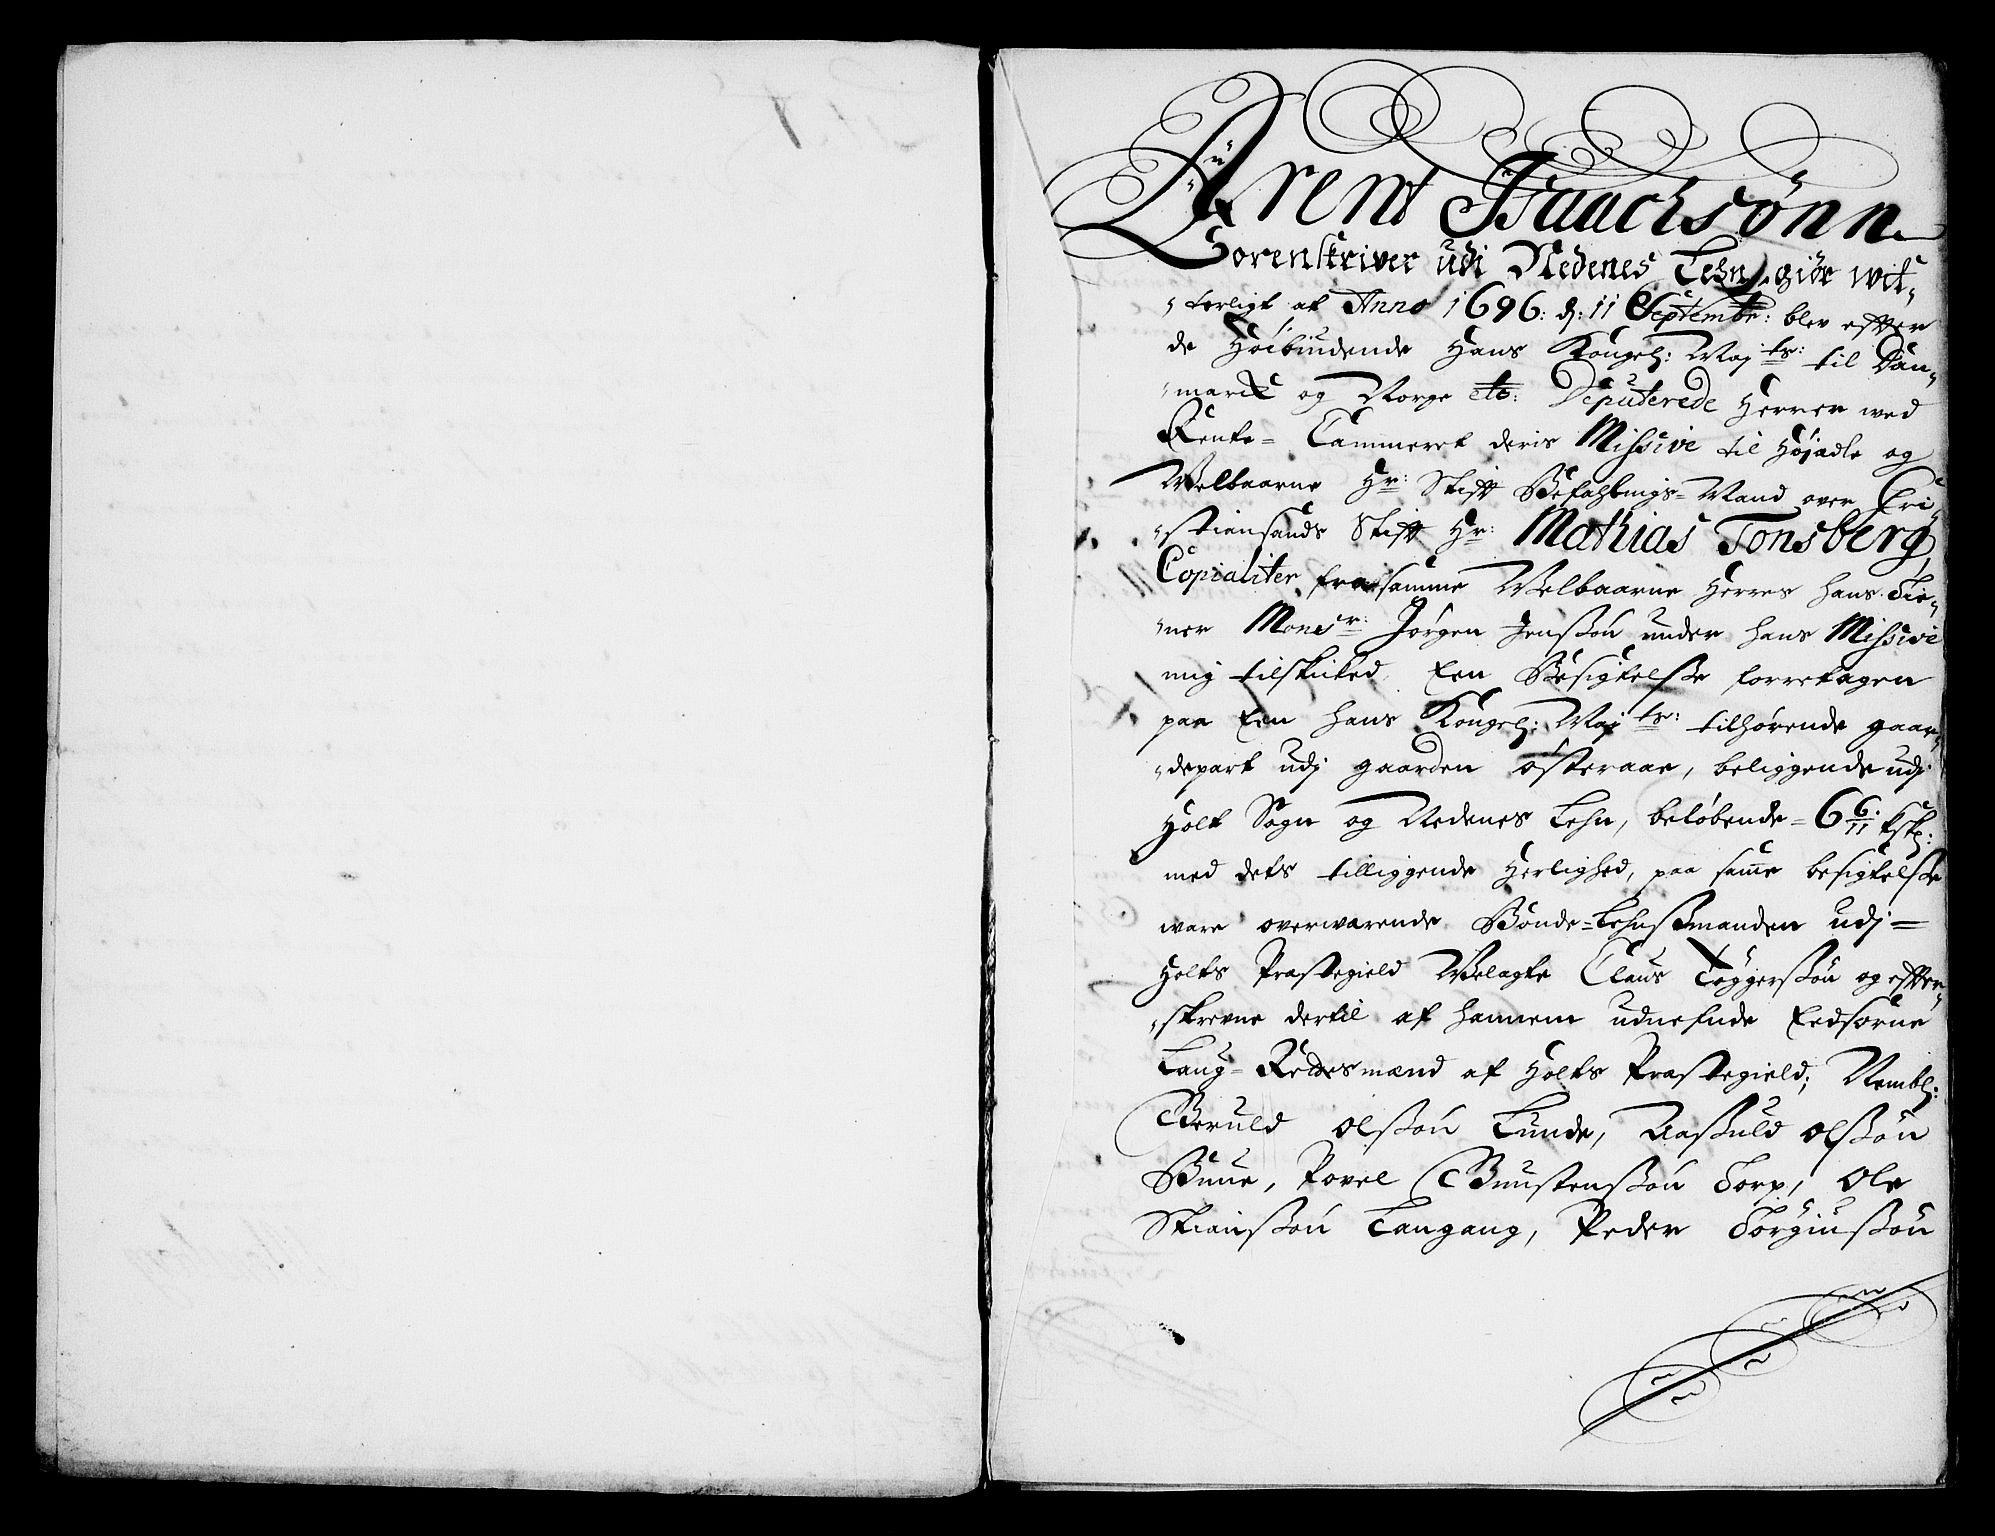 Arent Isaachsønn
Sorenskriver udi Nedenes Lehn, giør wit-
-terligt at Anno 1696: d: 11 Septembr: blev efter
de Høibiudende Hans Kongel: May:ts: til Dan-
-marck og Norge etc: Deputerede Herrer wed
Rente-Cammeret deris Missive til Højædle og
Welbaarne Hr: Stift Befahlings-Mand over Cri-
-stiansands Stift Hr: Mathias Tonsberg,
Copialiter fra samme Welbaarne Herres hans Tie-
-ner Monsr: Jørgen Jenssøn under hans Missive
mig tilskicked, Een Besigtelsse forretagen
paa Een Hans Kongel: May:ts: tilhørende gaar-
-depart udj gaarden Østeraae, beliggende udj
Holt Sogn og Nedenes Lehn, beløbende- 6 6/11 ###
med dets tilliggende Herlighed, paa samme besigtelsse
ware overwærende Bonde-Lehnssmanden udj=
Holts Præstegield Welagte Claus Tøggerssøn og efter-
-skrevne dertil af hannem udnefnde Eedsorne
Laug-Rettesmænd af Holts Præstegield; Nembl:
Beruld Olssøn Lunde, Aassuld Olssøn
Buue, Povel Gunstenssøn Torp, Ole
Stianssøn Langang, Peder Torgiussøn